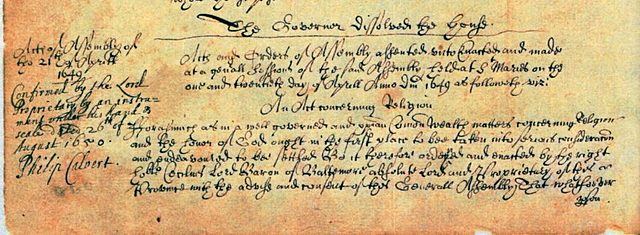 The Governor dissolved the House.
Acts of Assembly of
the 21th of Aprill
1649
Confirmed by the Lord
Proprietary by an instru-
ment under his hand &
seale 26th of
August 1650.
Philip Calvert.
Acts and Orders of Assembly assented vnto Enacted and made
at a genall Sessions of the said Assembly held at St Maries on the
one and twentieth day of Aprill Anno Dm 1649 as followeth viz:
An Act concerning Religion
fforasmuch as in a well governed and Xpian Comon Wealth matters concerning Religion
and the honor of God ought in the first place to bee taken into serious consideracon
and endeavoured to bee settled Bee it therefore ordered and enacted by the right
hoble Cecilius Lord Baron of Baltemore absolute Lord and Proprietary of this
Province with the advise and consent of this Generall Assembly That whatsoever